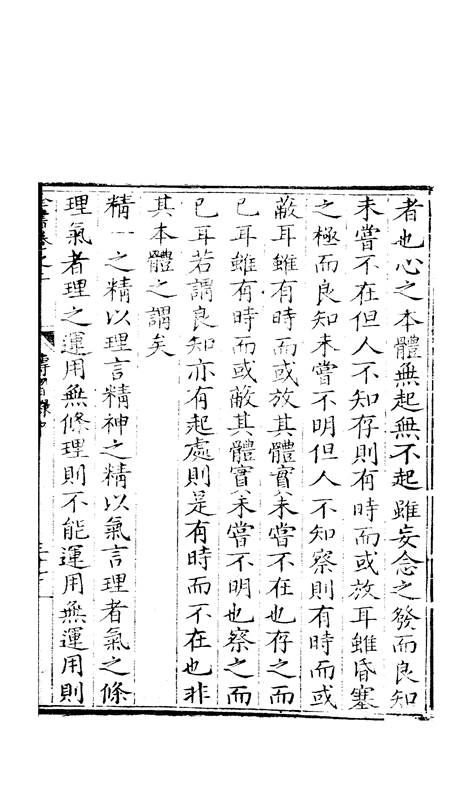 者也心之本體無起無不起雖妄念之發而良知
未嘗不在但人不知存則有時而或放耳雖昏塞
之極而良知未嘗不明但人不知察則有時而或
蔽耳雖有時而或放其體實未嘗不在也存之而
已耳雖有時而或蔽其體實未嘗不明也察之而
已耳若謂良知亦有起處則是有時而不在也非
其本體之謂矣
精一之精以理言精神之精以氣言理者氣之條
理氣者理之運用無條理則不能運用無運用則